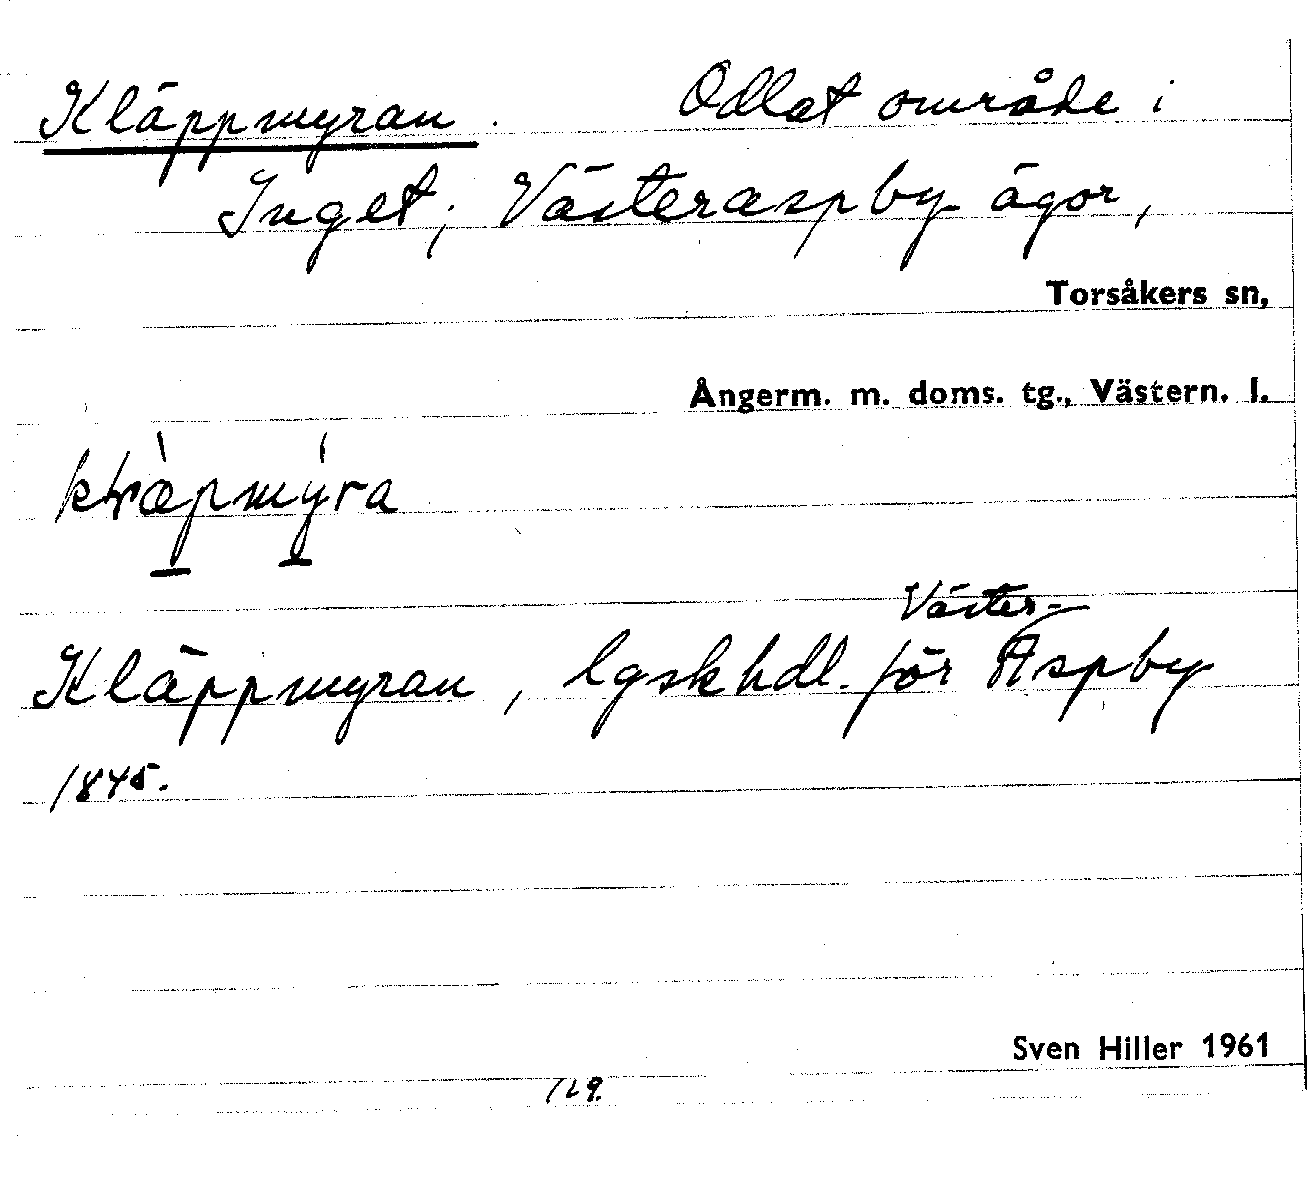 Kläppmyran. Odlat område i
Inget; Västeraspby ägor,
Torsåkers sn,
Ångerm. m. doms. tg., Västern. l.
Kläppmyran, lgskhdl. för Väster-Aspby
1845.
Sven Hiller 1961
129.